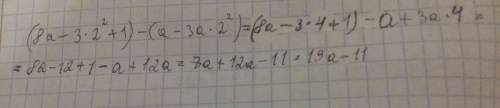 (8a-3·2²+1)-(a-3a·2²)=(8a-3·4+1)-a+3a·4=
=8a-12+1-a+12a=7a+12a-11=19a-11